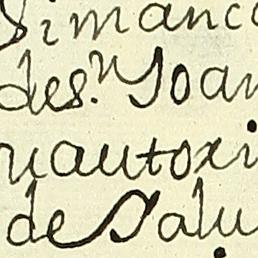 Simanca
des.ⁿ Joan
uautoxi
de Salu